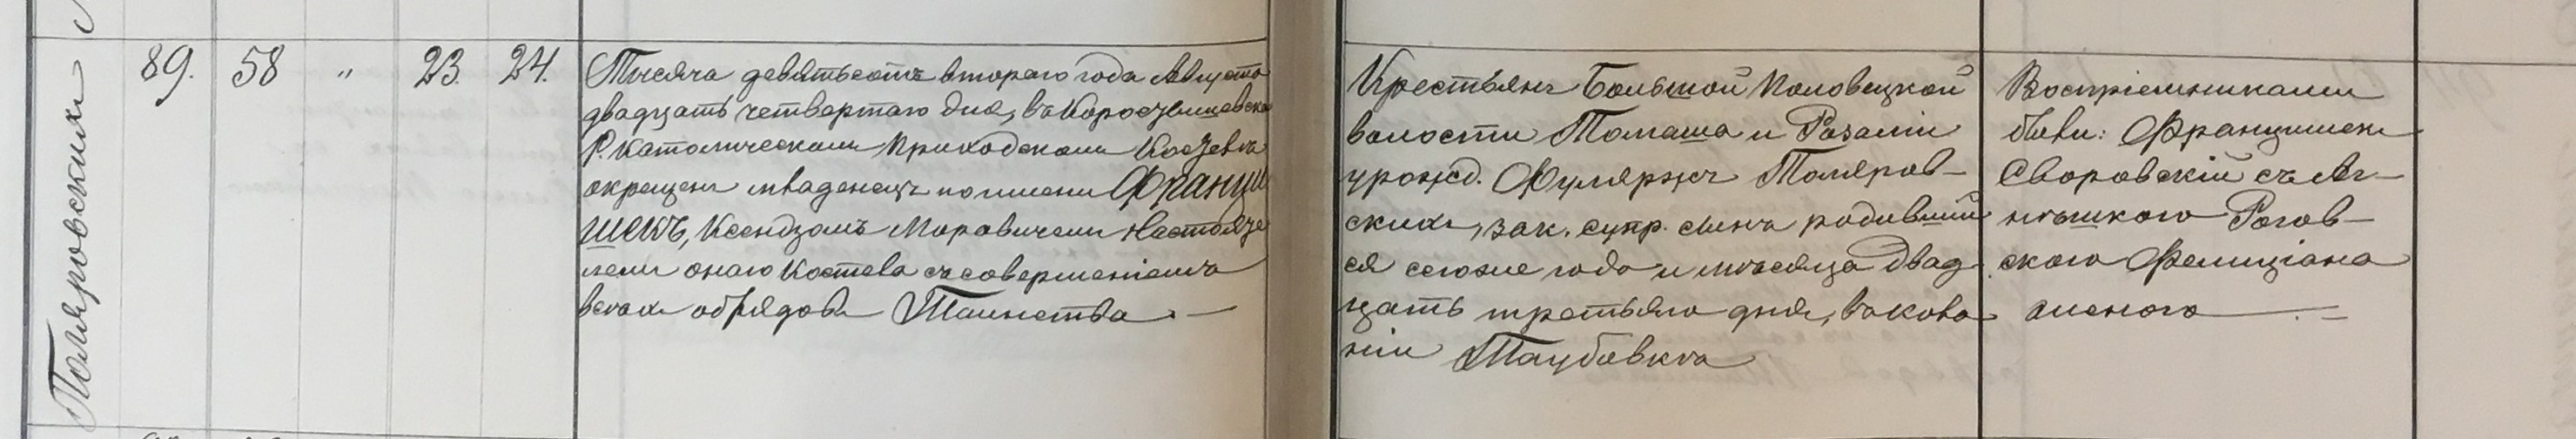 Поляровскихъ
89. 58 " 23. 24.
Тысяча девятьсотъ втораго года Августа
двадцать четвертаго дня, въ Коростышевско
Р. Католическомъ Приходскомъ Костелѣ
окрещенъ младенецъ по имени Франци
шекъ, Ксендзомъ Моравичемъ Настояте
лемъ онаго Костела съ совершеніемъ
всѣхъ обрядовъ Таинства. —
Крестьянъ Большой Половецкой
волости Томаша и Розаліи
урожд. Фулярнъ Поляров-
скихъ, зак. супр. сынъ родивший
ся сегоже года и мѣсяца двад
цать третьяго дня, въ коло
ніи Таубовкѣ
Воспріемниками
были: Францишекъ
Своровскій съ Аг-
нѣшкою Рогов-
скою Фелиціана
женою —